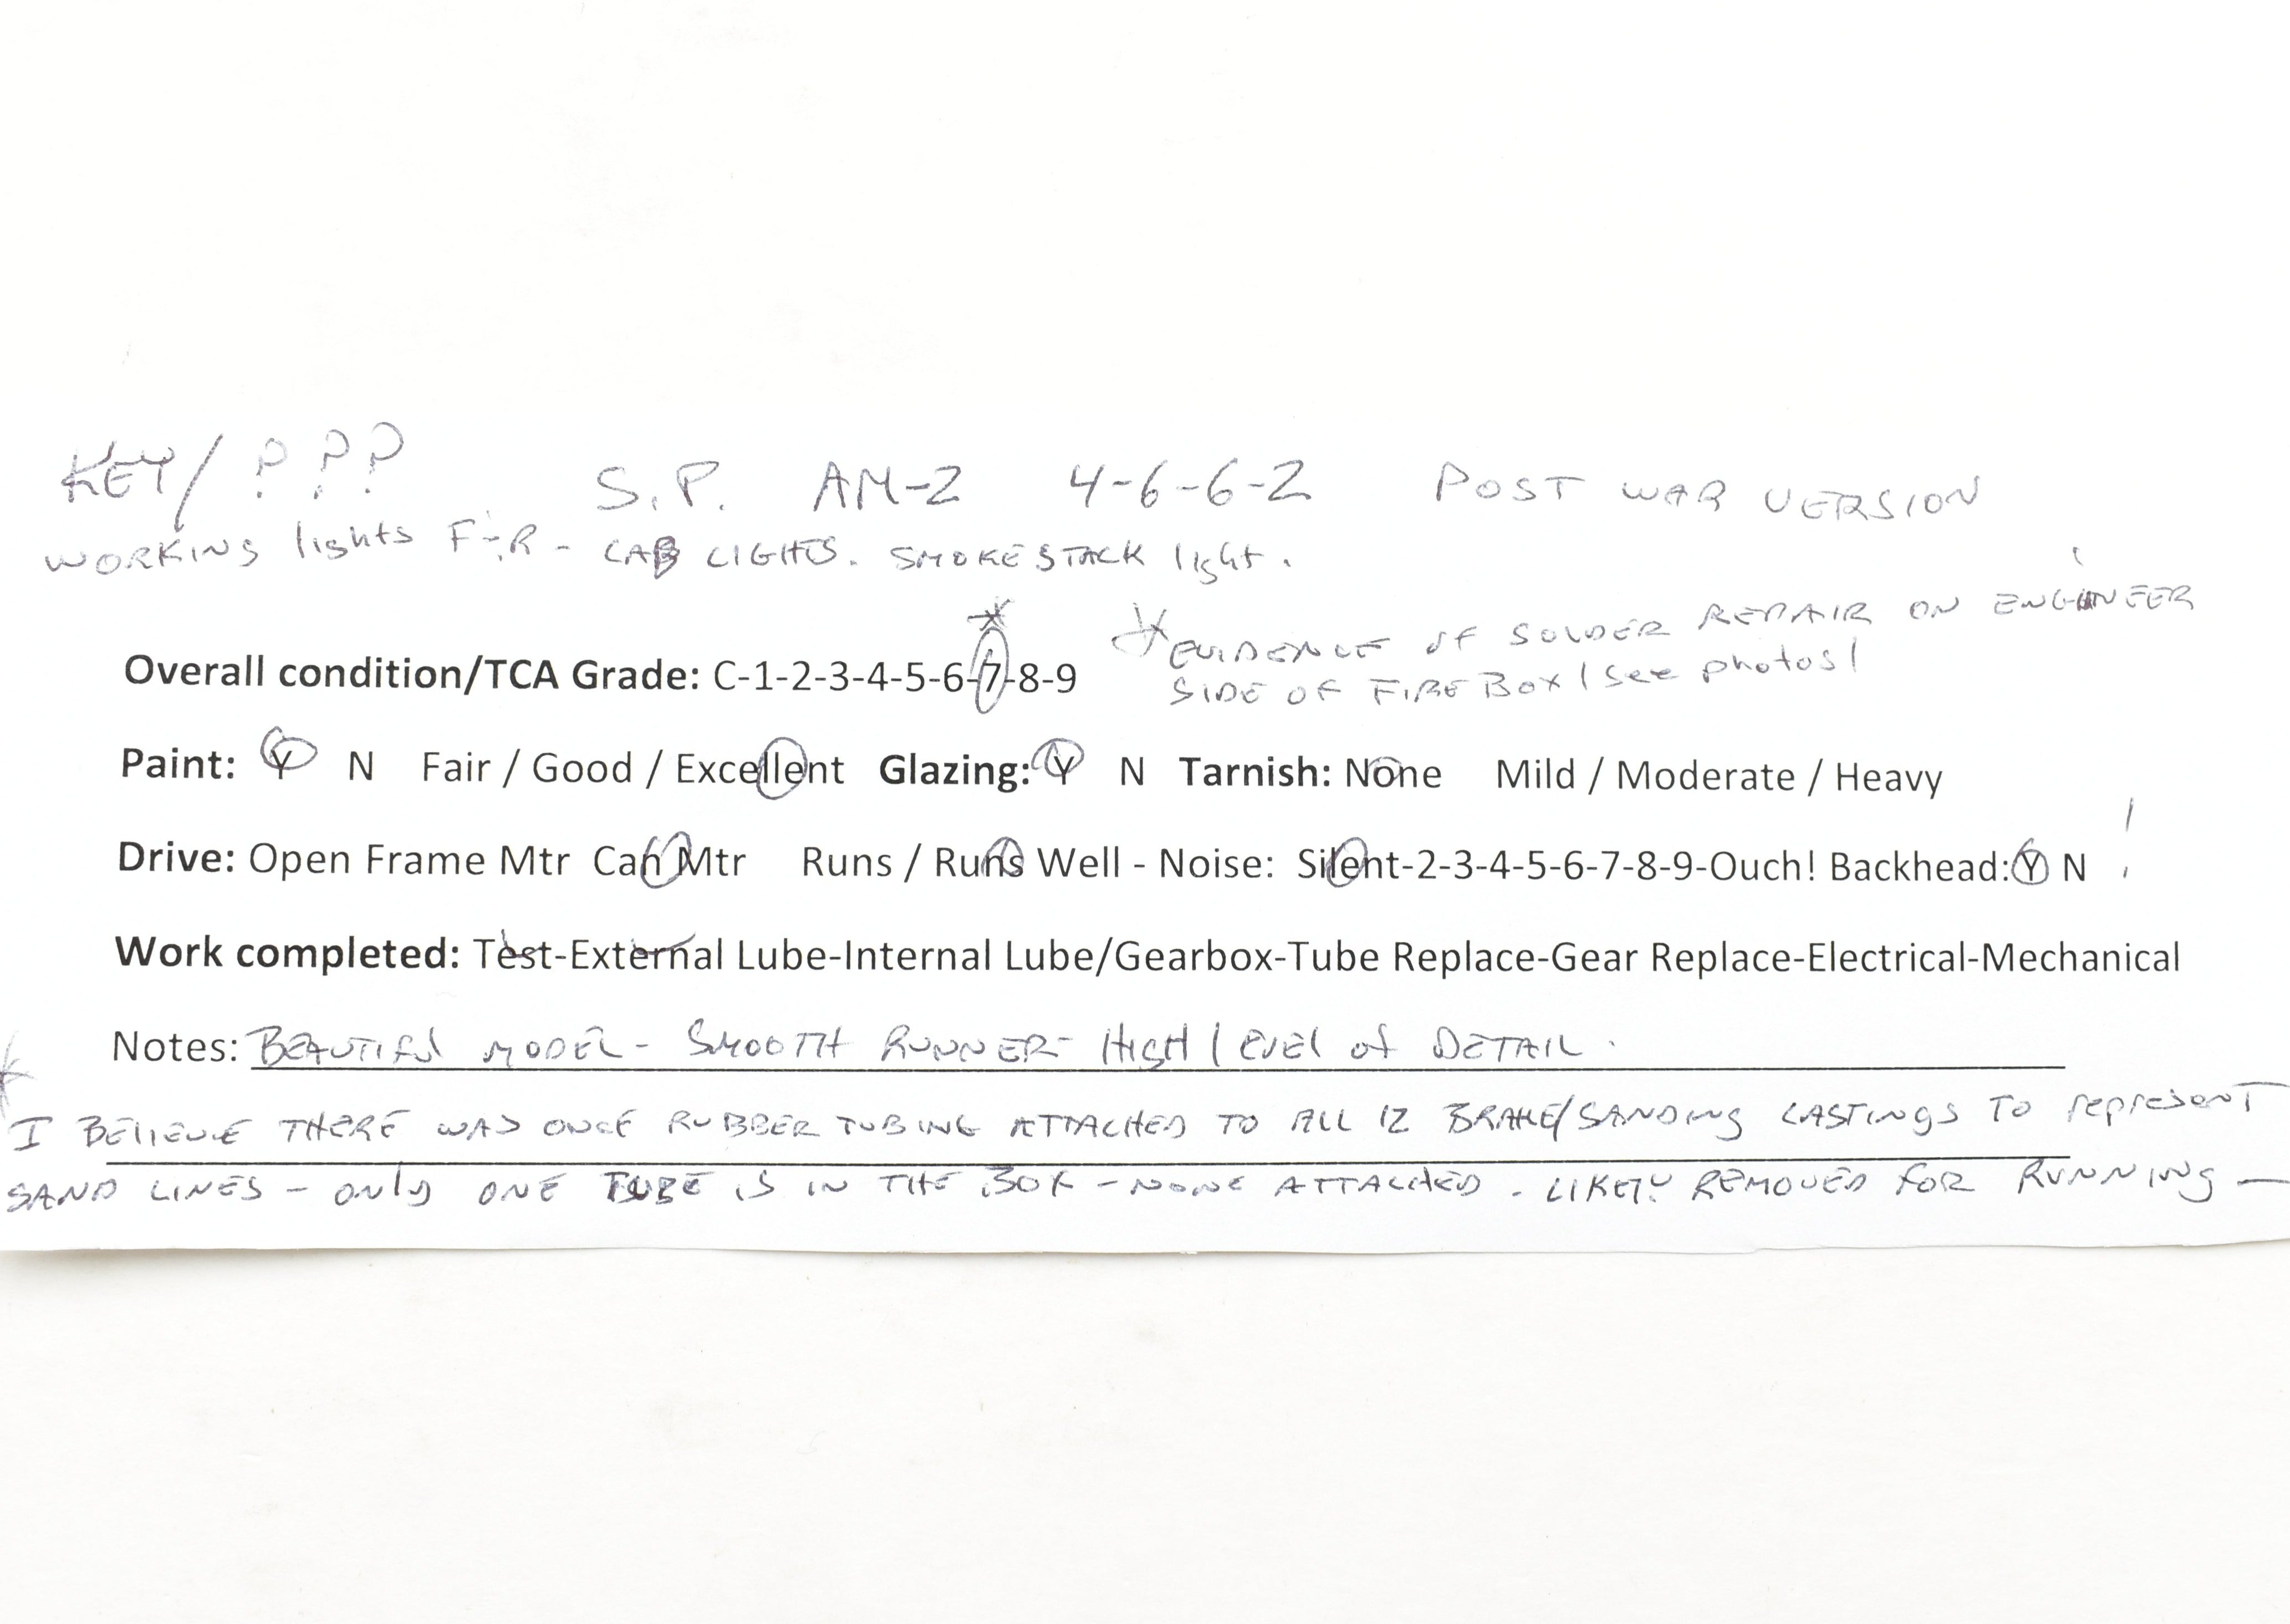 KEY/ ???  S.P.  AM-2  4-6-6-2  POST WAR VERSION
WORKING lights F-R - CAB LIGHTS. SMOKESTACK light.
* EVIDENCE OF SOLDER REPAIR ON ENGINEER
SIDE OF FIREBOX (see photos)
Overall condition/TCA Grade: C-1-2-3-4-5-6-7-8-9
Paint: Y N Fair / Good / Excellent Glazing: Y N Tarnish: None Mild / Moderate / Heavy
Drive: Open Frame Mtr Can Mtr Runs / Runs Well - Noise: Silent-2-3-4-5-6-7-8-9-Ouch! Backhead: Y N !
Work completed: Test-External Lube-Internal Lube/Gearbox-Tube Replace-Gear Replace-Electrical-Mechanical
Notes: BEAUTIFUL MODEL - SMOOTH RUNNER - HIGH LEVEL of DETAIL.
* I BELIEVE THERE WAS ONCE RUBBER TUBING ATTACHED TO ALL 12 BRAKE/SANDING CASTINGS TO represent
SAND LINES - ONLY ONE TUBE IS IN THE BOX - NONE ATTACHED. LIKELY REMOVED FOR RUNNING -